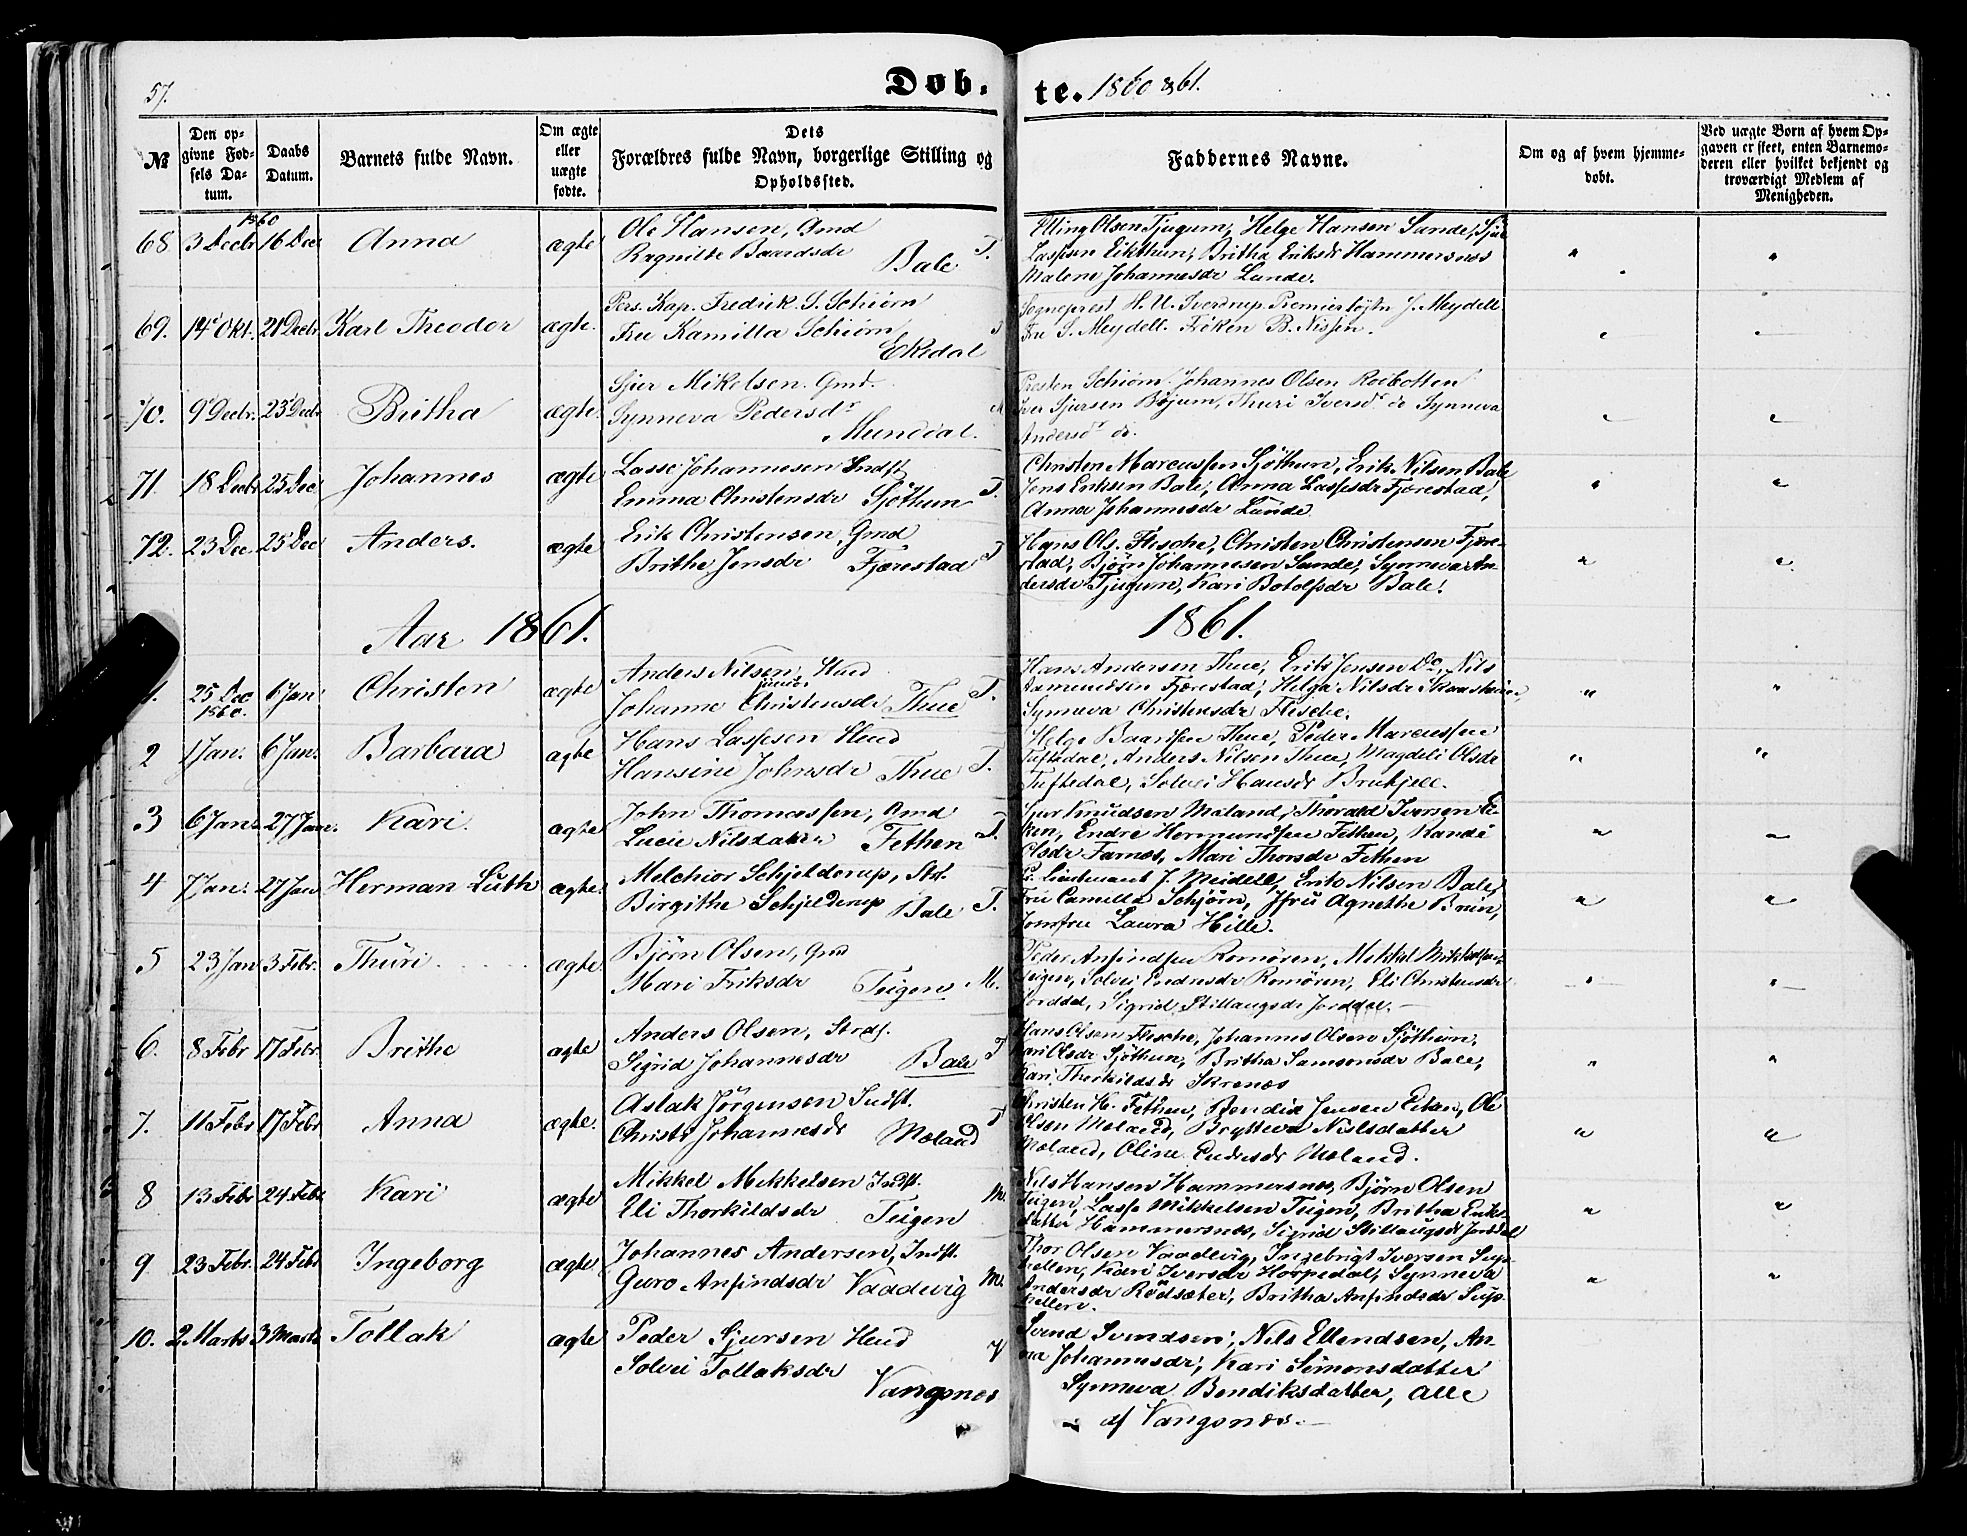 57.
Døb-
te. 1860 & 61.
№
Den op-
givne Fød-
sels Da-
tum.
Daabs
Datum.
Barnets fulde Navn.
Om ægte
eller
uægte
fødte.
Dets
Forældres fulde Navn, borgerlige Stilling og
Opholdssted.
Faddernes Navne.
Om og af hvem hjemme-
døbt.
Ved uægte Børn af hvem Op-
gaven er skeet, enten Barnemo-
deren eller hvilket bekjendt og
troværdigt Medlem af
Menigheden.
1860
68 3 Decbr 16 Dec Anna ægte Ole Hansen, Gmd
Ragnilde Baardsdr Bale T.
Elling Olsen Tjugum, Helge Hansen Sunde, Sjur
Lassesen Eikthun, Britha Eriksdr Hammersnæs
Malene Johannesdr Lunde.
69. 14 Okt. 21 Decbr. Karl Theodor ægte. Pers. Kap. Fredrik S. Schiørn
Fru Kamilla Schiørn
Ekedal
Sogneprest H. U. Sverdrup. Premierløjtn J. Meydell
Fru S. Meydell. Frøken B. Nissen.
70. 9 Decbr. 23 Decbr Britha ægte. Sjur Mikelsen. Gmd.
Synneva Pedersdr
Mundal. M
Presten Schiørn. Johannes Olsen Roibotten
Iver Sjursen Bøjum, Thuri Iversdr do Synneva
Andersdr do.
71. 18 Decbr 25 Dec Johannes ægte Lasse Johannesen Indst
Emma Christensdr Sjøthun T.
Christen Marcussen Sjøthun, Erik Nilsen Bale
Jens Eriksen Bale, Anna Lassesdr Fjærestad,
Anna Johannesdr Lunde
72. 23 Dec 25 Dec Anders. ægte Erik Christensen, Gmd
Brithe Jensdr Fjærestad T
Hans Ols. Flesche, Christen Christensen Fjære-
stad, Bjørn Johannesen Sunde, Synneva An-
dersdr Tjugum, Kari Botolfsdr Bale.
Aar 1861.
1861.
1. 25 Dec 1860. 6 Jan Christen ægte Anders Nilsen, Hmd
junior
Johanne Christensdr Thue T.
Hans Andersen Thue, Erik Jensen Do, Nils
Aamundsen Fjærestad, Helga Nilsdr Skaasheim,
Synneva Christensdr Flesche.
2 1 Jan. 6 Jan. Barbara ægte Hans Lassesen Hmd
Hansine Johnsdr Thue T.
Helge Baardsen Thue, Peder Marcussen
Tuftedal, Anders Nilsen Thue, Magdeli Olsdr
Tuftedal, Solvei Hansdr Brufjell.
3 6 Jan. 27 Jan. Kari. ægte John Thomassen, Gmd
Lucie Nilsdatter Fethen T.
Sjur Knudsen Moland, Thorald Iversen Ei-
ken, Endre Hermundsen Fethen, Randi
Olsdr Farnæs, Mari Thorsdr Fethen
4 7 Jan. 27 Jan Herman Luth ægte. Melchior Schjelderup, Str.
Birgithe Schjelderup Bale T.
Pr. Lieutenant J. Meidell, Erik Nilsen Bale,
Fru Camilla Schjørn, Jfru Agnethe Brun,
Jomfru Laura Hille.
5 23 Jan 3 Febr. Thuri ægte. Bjørn Olsen, Gmd
Mari Eriksdr Teigen M.
Peder Anfindsen Romøren, Mekkel Mikkelsen
Teigen, Solvei Endresdr Romøren, Eli Christensdr
Jorddal, Sigrid Stillaugsdr Jorddal.
6. 8 Febr 17 Febr Brithe ægte Anders Olsen, Strds.
Sigrid Johannesdr Bale T
Hans Olsen Flesche, Johannes Olsen Sjøthun,
Kari Olsdr Sjøthun, Britha Samsonsdr Bale,
Kari Thorkildsdr Skrenæs
7. 11 Febr 17 Febr Anna ægte. Aslak Jørgensen Indst.
Christi Johannesdr Moland T
Christen H. Fethen, Bendix Jensen Eiken, Ole
Olsen Moland, Brytteva Nielsdatter
Moland, Oline Endresdr Moland.
8 13 Febr 24 Febr Kari ægte Mikkel Mikkelsen Indst.
Eli Thorkildsdr Teigen M.
Nils Hansen Hammersnæs, Bjørn Olsen
Teigen, Lasse Mikkelsen Teigen, Britha Eriks-
datter Hammersnæs, Sigrid Stillaugsdr Jorddal
9 23 Febr. 24 Febr Ingeborg ægte Johannes Andersen, Indst.
Guro Anfindsdr Vaadevig M.
Thor Olsen Vaadevig, Ingebrigt Iversen Sup-
hellen, Kari Iversdr Horpedal, Synneva
Andersdr Rødsæter, Britha Anfindsdr Sup-
hellen.
10. 2 Marts 3 Marts Tollak ægte Peder Sjursen Hmd
Solvei Tollaksdr
Vangsnes V
Svend Svendsen, Nils Ellendsen, An-
na Johannesdr, Kari Simonsdatter
Synneva Bendiksdatter, alle
af Vangsnæs.